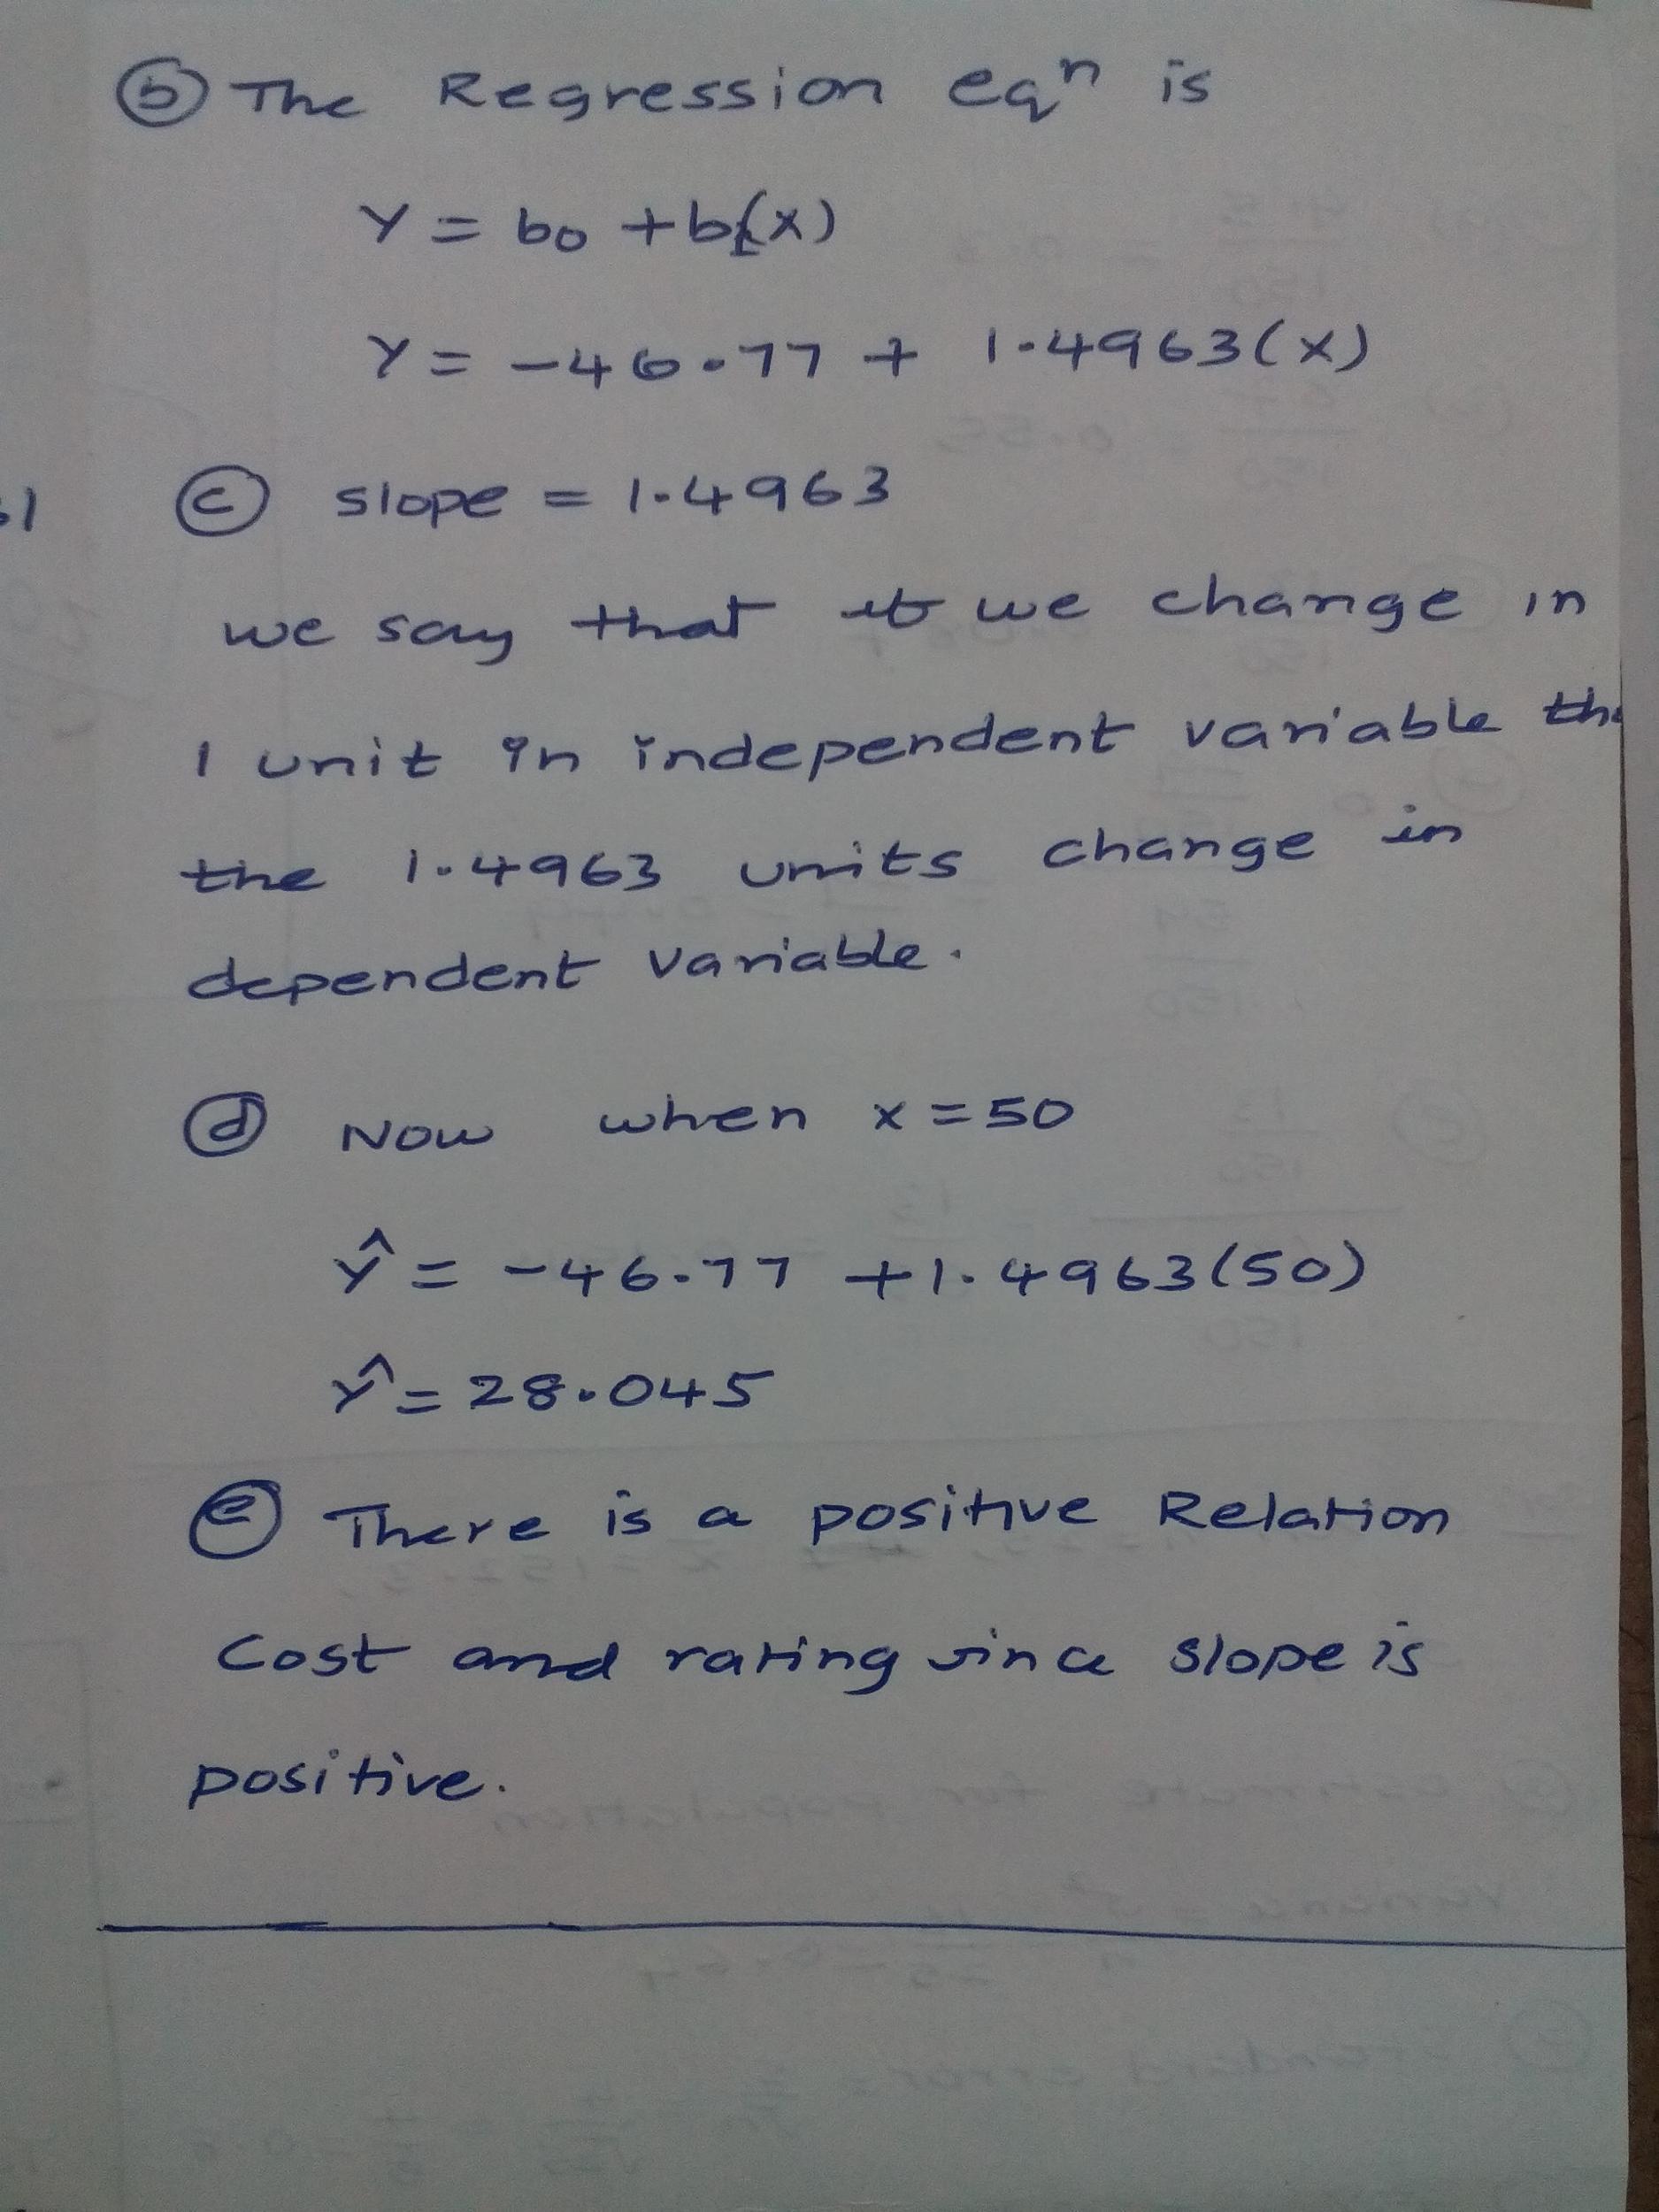 ⓑ The Regression eqⁿ is
Y = b0 + b1(x)
Y = -46.77 + 1.4963(x)
ⓒ slope = 1.4963
we say that if we change in
1 unit in independent variable
the 1.4963 units change in
dependent variable.
ⓓ Now when x = 50
Ŷ = -46.77 + 1.4963(50)
Ŷ = 28.045
ⓔ There is a positive Relation
Cost and rating since slope is
positive.